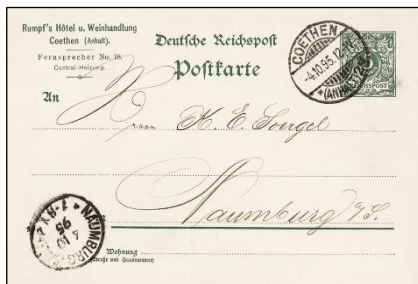 Rumpf's Hôtel u. Weinhandlung
Coethen (Anhalt).
Fernsprecher No. 18.
Central-Heizung.
Deutsche Reichspost
Postkarte
COETHEN
4.10.95.12-1N.
(ANHALT)
REICHSPOST
An
Herrn K. E. Soergel
Naumburg a/S.
NAUMBURG
4 10
95
Wohnung
(Straße und Hausnummer)